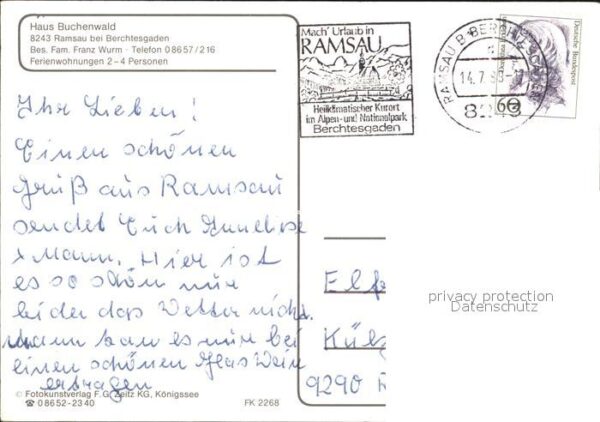 Haus Buchenwald
8243 Ramsau bei Berchtesgaden
Bes. Fam. Franz Wurm · Telefon 0 86 57 / 216
Ferienwohnungen 2-4 Personen
Mach' Urlaub in
RAMSAU
Heilklimatischer Kurort
im Alpen- und Nationalpark
Berchtesgaden
RAMSAU B BERCHTESGADEN
14.7.
8243
60
Deutsche Bundespost
Ihr Lieben!
Einen schönen
Gruß aus Ramsau
sendet Euch Anneliese
x Mann. Hier ist
es so schön nur
leider das Wetter nicht.
Mann kan es nur bei
einen schönen Glas Wein
ertragen
Elf
Kül
9290
privacy protection
Datenschutz
© Fotokunstverlag F. G. Zeitz KG, Königssee
☎ 0 86 52-23 40
FK 2268